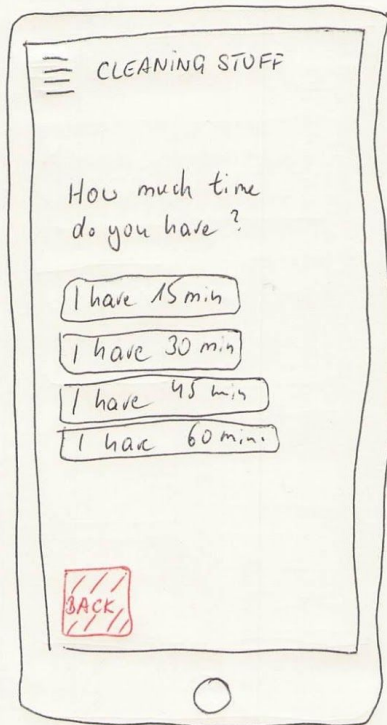 CLEANING STUFF
How much time
do you have?
I have 15 min
I have 30 min
I have 45 min
I have 60 min.
BACK